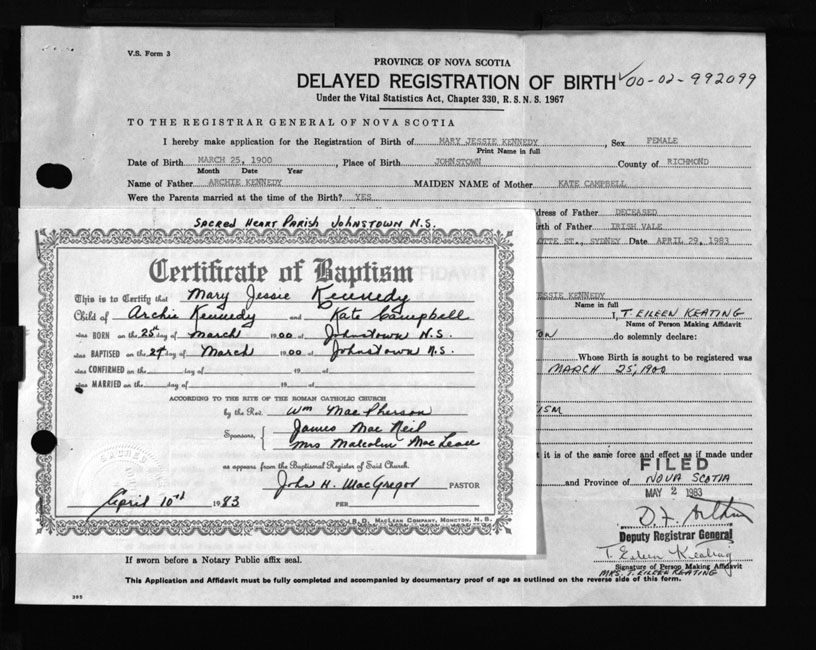 V.S. Form 3
PROVINCE OF NOVA SCOTIA
DELAYED REGISTRATION OF BIRTH ✓00-02-992099
Under the Vital Statistics Act, Chapter 330, R.S.N.S. 1967
TO THE REGISTRAR GENERAL OF NOVA SCOTIA
I hereby make application for the Registration of Birth of MARY JESSIE KENNEDY, Sex FEMALE
Print Name in full
Date of Birth MARCH 25, 1900, Place of Birth JOHNSTOWN County of RICHMOND
Month Date Year
Name of Father ARCHIE KENNEDY MAIDEN NAME of Mother KATE CAMPBELL
Were the Parents married at the time of the Birth? YES
dress of Father DECEASED
irth of Father IRISH VALE
OTTE ST., SYDNEY Date APRIL 29, 1983
SACRED HEART PARISH JOHNSTOWN N.S.
Certificate of Baptism
This is to Certify that Mary Jessie Kennedy
Child of Archie Kennedy and Kate Campbell
was BORN on the 25th day of March 1900 at Johnstown N.S.
was BAPTISED on the 29 day of March 1900 at Johnstown N.S.
was CONFIRMED on the day of 19 at
was MARRIED on the day of 19 at
ACCORDING TO THE RITE OF THE ROMAN CATHOLIC CHURCH
by the Rev. Wm MacPherson
Sponsors, { James MacNeil
Mrs Malcolm MacLean
as appears from the Baptismal Register of Said Church.
John H. MacGregor PASTOR
April 10th 1983 PER
B. D. MacLean Company, Moncton, N. B.
ESSIE KENNEDY
Name in full
I, T. EILEEN KEATING
Name of Person Making Affidavit
TON do solemnly declare:
Whose Birth is sought to be registered was
MARCH 25, 1900
ISM
t it is of the same force and effect as if made under
FILED
and Province of NOVA SCOTIA
MAY 2 1983
Deputy Registrar General
T. Eileen Keating
Signature of Person Making Affidavit
MRS. T. EILEEN KEATING
If sworn before a Notary Public affix seal.
This Application and Affidavit must be fully completed and accompanied by documentary proof of age as outlined on the reverse side of this form.